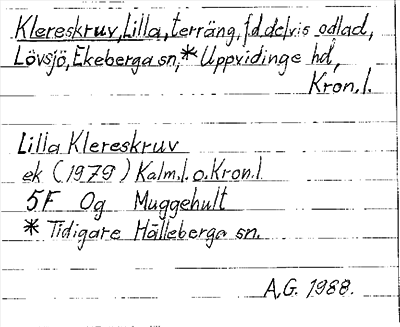 Klereskruv, Lilla, terräng, f.d. delvis odlad,
Lövsjö, Ekeberga sn,* Uppvidinge hd,
Kron.l.
Lilla Klereskruv
ek (1979) Kalm.l. o. Kron.l.
5F Og Muggehult
* Tidigare Hälleberga sn.
A.G. 1988.